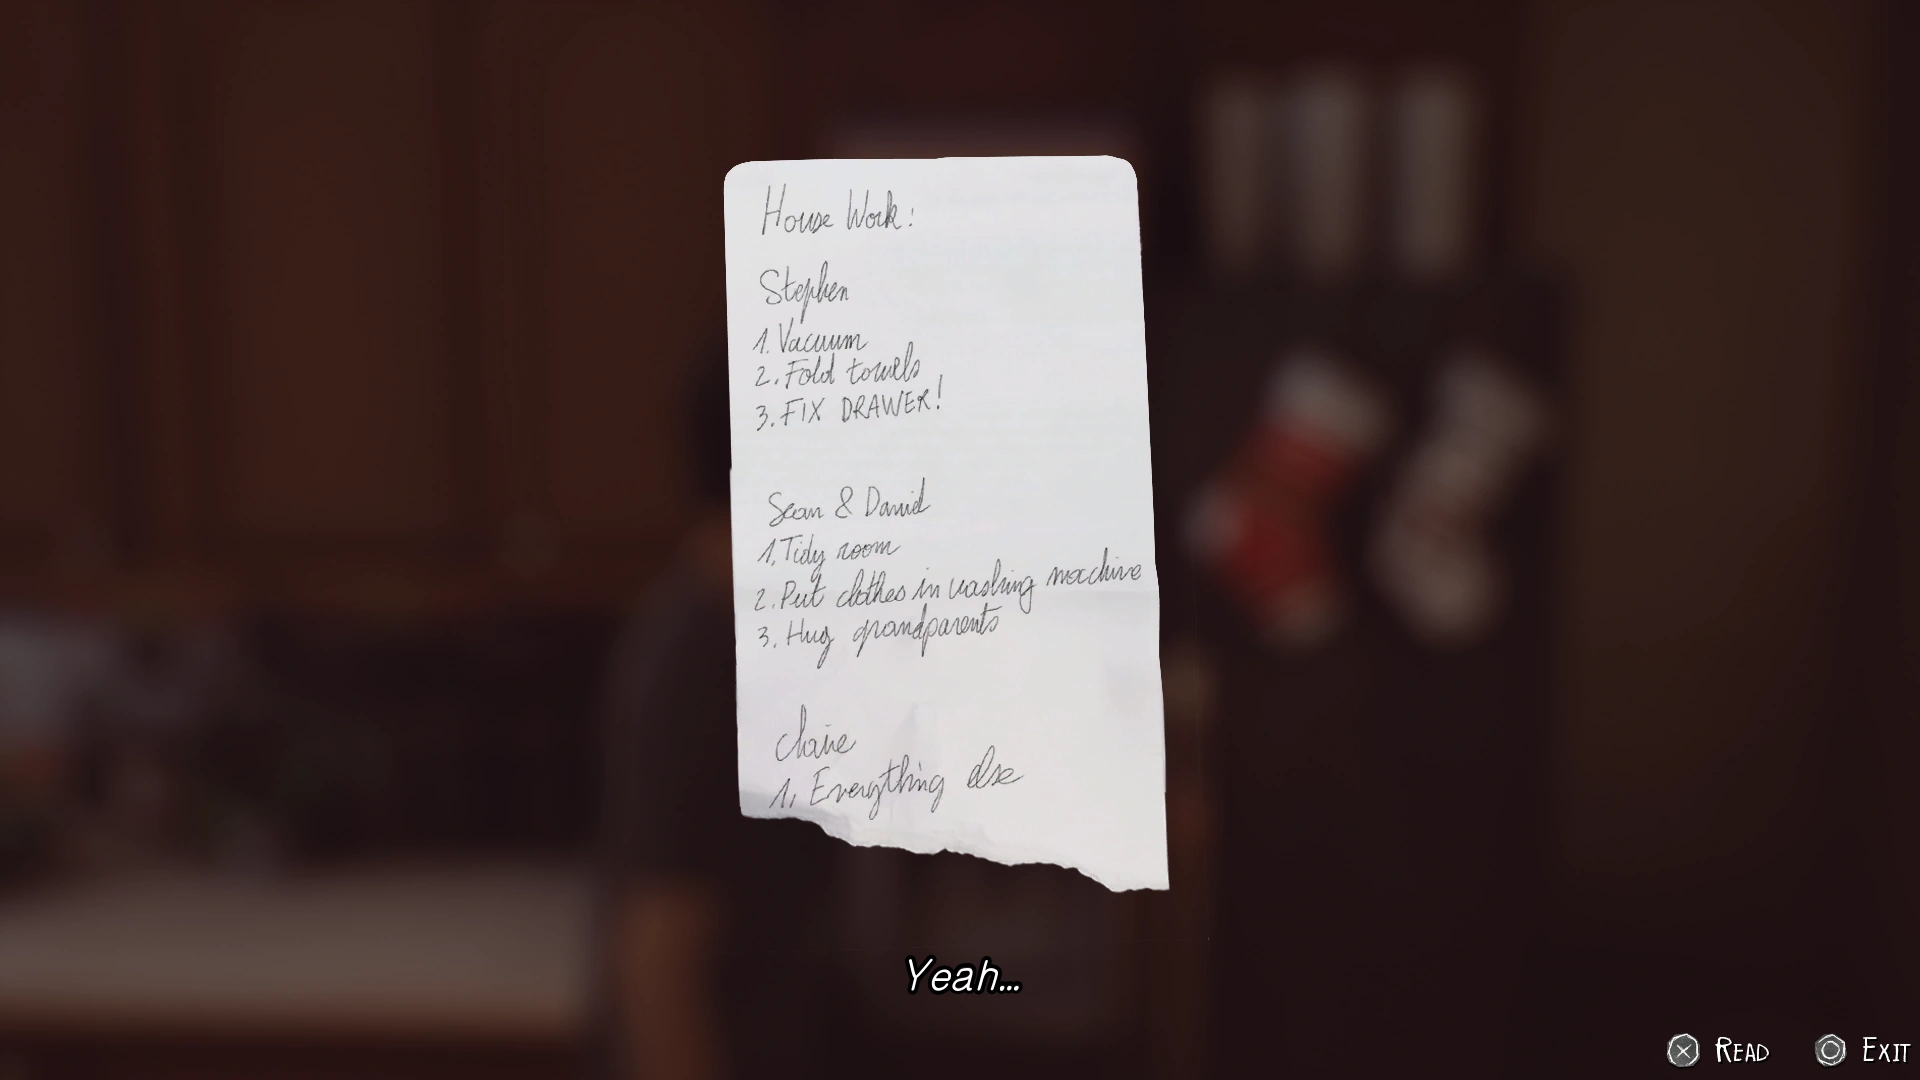 House Work:
Stephen
1. Vacuum
2. Fold towels
3. FIX DRAWER!
Sean & Daniel
1. Tidy room
2. Put clothes in washing machine
3. Hug grandparents
Claire
1. Everything else
Yeah...
READ
EXIT